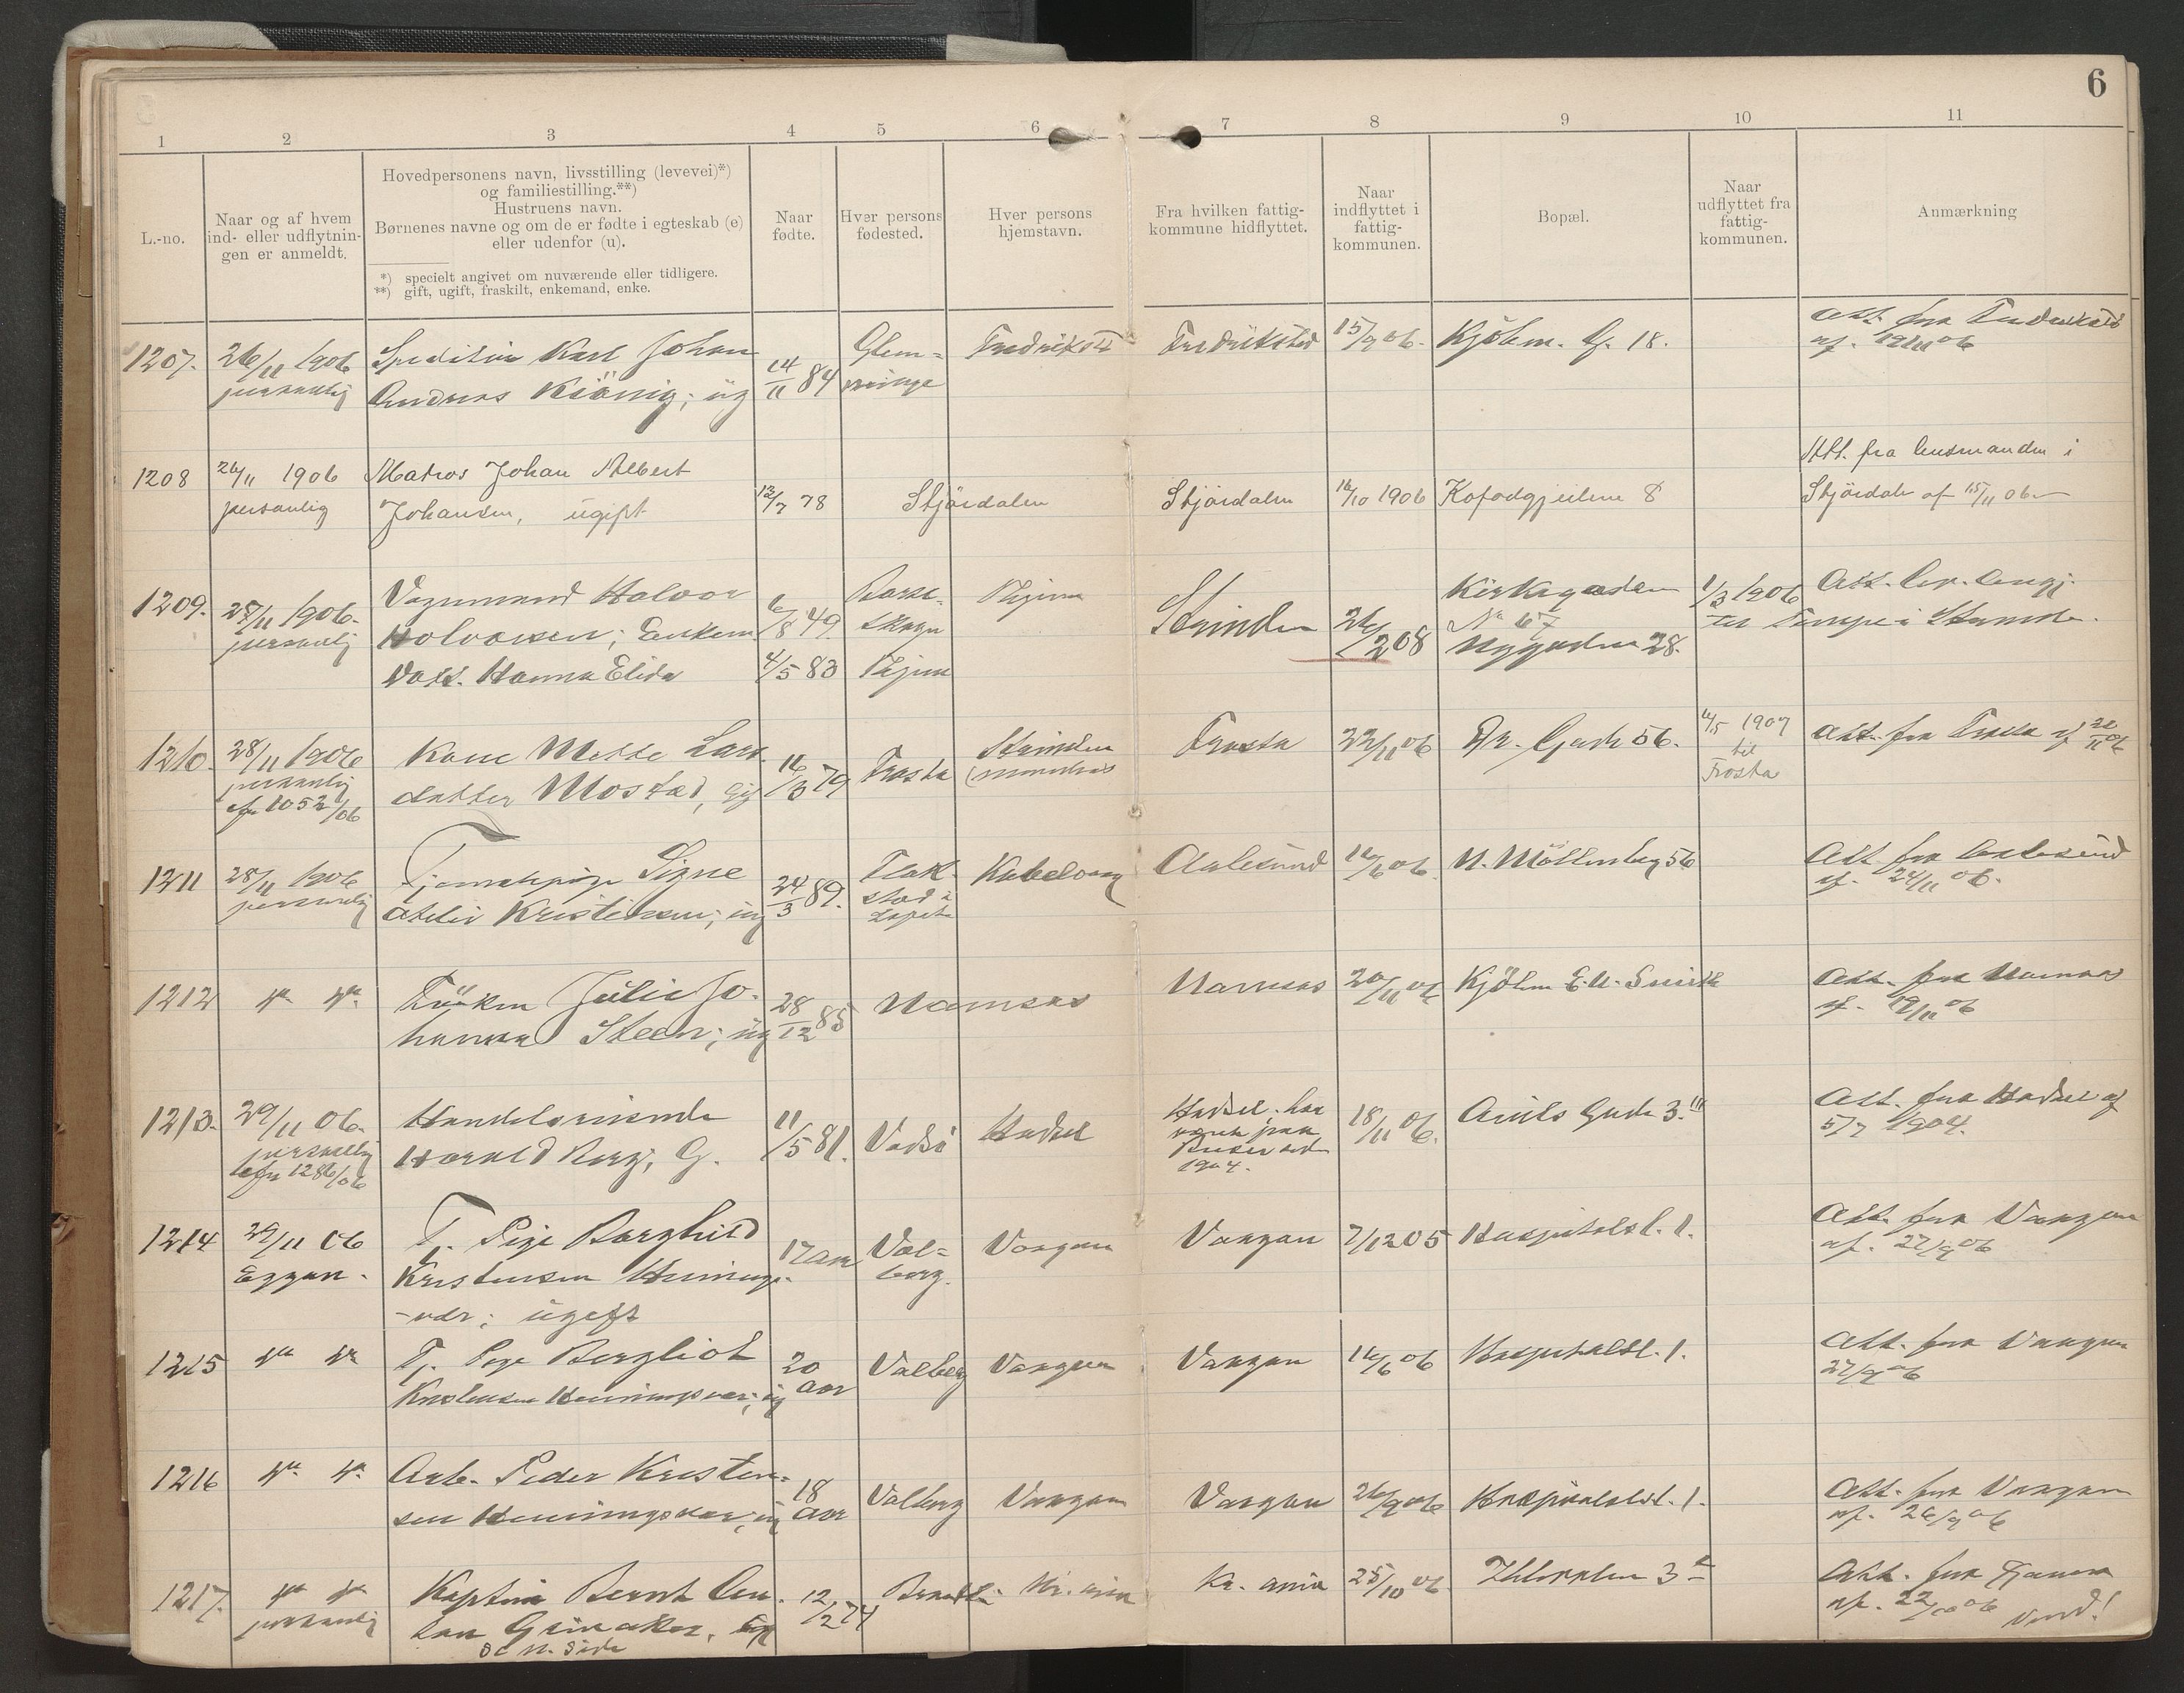 6
1 2 3 4 5 6 7 8 9 10 11
L.-no.
Naar og af hvem
ind- eller udflytnin-
gen er anmeldt.
Hovedpersonens navn, livsstilling (levevei)*)
og familiestilling.**)
Hustruens navn.
Børnenes navne og om de er fødte i egteskab (e)
eller udenfor (u).
*) specielt angivet om nuværende eller tidligere.
**) gift, ugift, fraskilt, enkemand, enke.
Naar
fødte.
Hver persons
fødested.
Hver persons
hjemstavn.
Fra hvilken fattig-
kommune hidflyttet.
Naar
indflyttet i
fattig-
kommunen.
Bopæl.
Naar
udflyttet fra
fattig-
kommunen.
Anmærkning
1207.
26/11 1906
personlig
Karl Johan
Andreas Kiönig; üg
14/11 84
Glem-
minge
Fredrikst
Fredrikstad
15/9 06.
Kjöbm. G. 18.
Att. fra Fredrikstad
af. 19/11 06
1208
26/11 1906
personlig
Matros Johan Albert
Johansen, ugift
12/7 78
Stjördalen
Stjördalen
16/10 1906
Kofodgjeilene 8
Att. fra lensmanden i
Stjördalen af 15/11 06
1209.
27/11 1906.
personlig
Vognmand Halvor
Halvorsen; Enkem
Datt. Hanna Elida
6/8 49.
4/5 83
Børse-
skogn
Strinden
26/2 08
Kirkegaden
No 67
Nygaden 28.
1/3 1906
til Tempe i Strinden.
1210.
28/11 1906
personlig
cfr 1052/06
Kone Mette Lars-
datter Mostad, G
16/3 79
Frosta
Strinden
Frosta
22/11 06
Dr. Gade 56.
6/5 1907
til
Frosta
Att. fra Frosta af 22/11 06
1211
28/11 1906
personlig
Tjenestepige Signe
Kristensen; üg
24/3 89.
Flak-
stad i
Lofoten
Kabelvaag
Aalesund
16/6 06.
N. Möllenberg 56
Att. fra Aalesund
af. 24/11 06.
1212
do do
Fröken Julie Jo-
hanna Steen; üg
28/12 85
Namsos
Namsos
20/11 06
Kjöbm E. N. Smith
Att. fra Namsos
af. 19/11 06
1213.
29/11 06.
personlig
cfr 1286/06
Handelsreisende
Harald Berg, G.
11/5 81.
Vadsö
Hadsel
Hadsel. har
1904.
18/11 06.
Arilds Gade 3.III
Att. fra Hadsel af
5/7 1904.
1214
29/11 06
Eggan.
Tj. Pige Borghild
Kristensen Hennings-
-vær; ugift
17 aar
Val-
berg.
Vaagan
Vaagan
7/12 05
Hospitalsl. 1.
Att. fra Vaagan
af. 27/9 06
1215
do do
Tj. Pige Bergliot
Kristensen Henningsvær; üg
20
aar
Valberg
Vaagan
Vaagan
16/6 06
Hospitalsl. 1.
Att. fra Vaagan
27/9 06
1216
do do
Arb. Peder Kristen-
sen Henningsvær; üg
18
aar
Valberg
Vaagan
Vaagan
26/9 06
Hospitalsl. 1.
Att. fra Vaagan
af. 26/9 06
1217.
do do
personlig
Kaptein Bernt An-
ton Grinaker,
se n. side
12/2 74
Kr. ania
Kr. ania
25/10 06
Ihlevolden 3
Att. fra
af. 22/10 06
Vend!